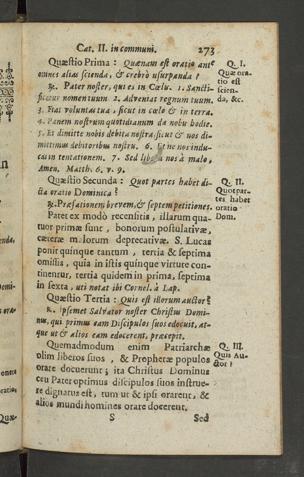 Cat. II. in communi. 273
Quæstio Prima : Quænam est oratio ante
omnes alias scienda, & crebrò usurpanda ?
℞. Pater noster, qui es in Cœlu. 1. Sancti-
ficetur nomen tuum. 2. Adveniat regnum tuum.
3. Fiat voluntas tua, sicut in cælo & in terra.
4. Panem nostrum quotidianum da nobis hodie.
5. Et dimitte nobis debita nostra, sicut & nos di-
mittimus debitoribus nostris. 6. Et ne nos indu-
cas in tentationem. 7. Sed libera nos à malo,
Amen. Matth. 6. v. 9.
Quæstio Secunda : Quot partes habet di-
cta oratio Dominica ?
℞. Præfationem brevem, & septem petitiones.
Patet ex modò recensitis, illarum qua-
tuor primæ sunt, bonorum postulativæ,
cæteræ malorum deprecativæ. S. Lucas
ponit quinque tantum, tertia & septima
omissis, quia in istis quinque virtute con-
tinentur, tertia quidem in prima, septima
in sexta, uti notat ibi Cornel. à Lap.
Quæstio Tertia : Quis est illorum auctor ?
℞. Ipsemet Salvator noster Christus Domi-
nus, qui primus eam Discipulos suos edocuit, at-
que ut & alios eam docerent, præcepit.
Quemadmodum enim Patriarchæ
olim liberos suos, & Prophetæ populos
orare docuerunt ; ita Christus Dominus
ceu Pater optimus discipulos suos instrue-
re dignatus est, tum ut & ipsi orarent, &
alios mundi homines orare docerent.
S Sed
Q. I.
Quæ ora-
tio est
scien-
da, &c.
Q. II.
Quot par-
tes habet
oratio
Dom.
Q. III.
Quis Au-
ctor ?